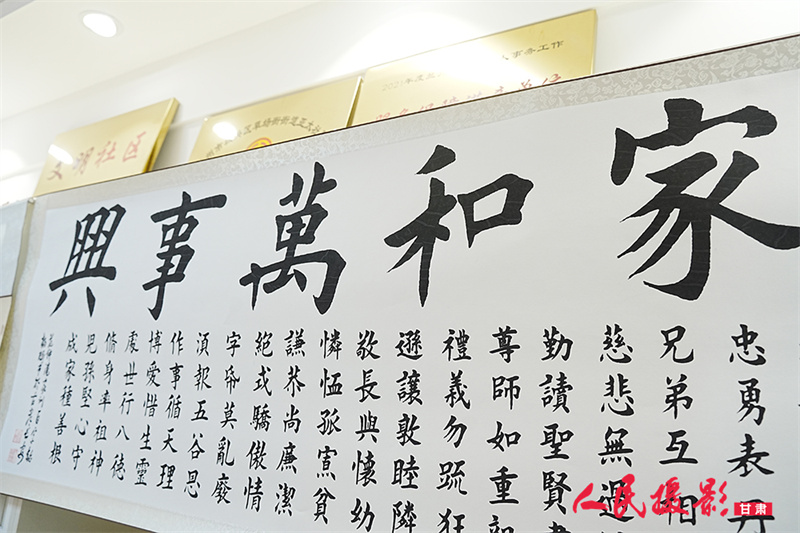 文明社区
事务工作
家和萬事興
忠勇表丹
兄弟互相
慈悲無過
勤讀聖賢書
尊師如重親
禮義勿疏狂
遜讓敦睦隣
敬長與懷幼
憐恤孤寡貧
謙恭尚廉潔
絕戒驕傲情
字帋莫亂廢
須報五谷恩
作事循天理
博愛惜生靈
處世行八德
脩身率祖神
児孫堅心守
成家種善根
人民摄影
甘肃